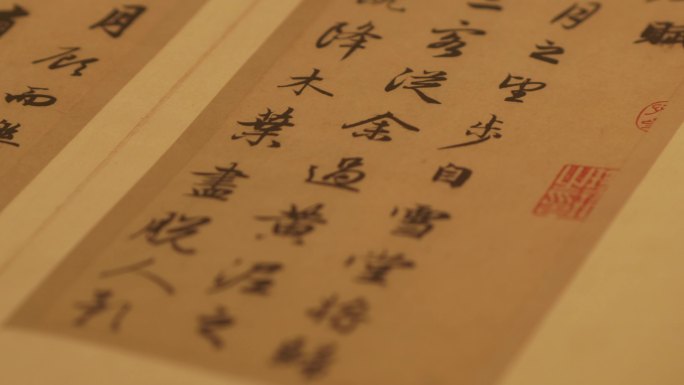 賦
月之望步自雪堂將歸
二客從余過黃泥之
降木葉盡脫人影
月顧而